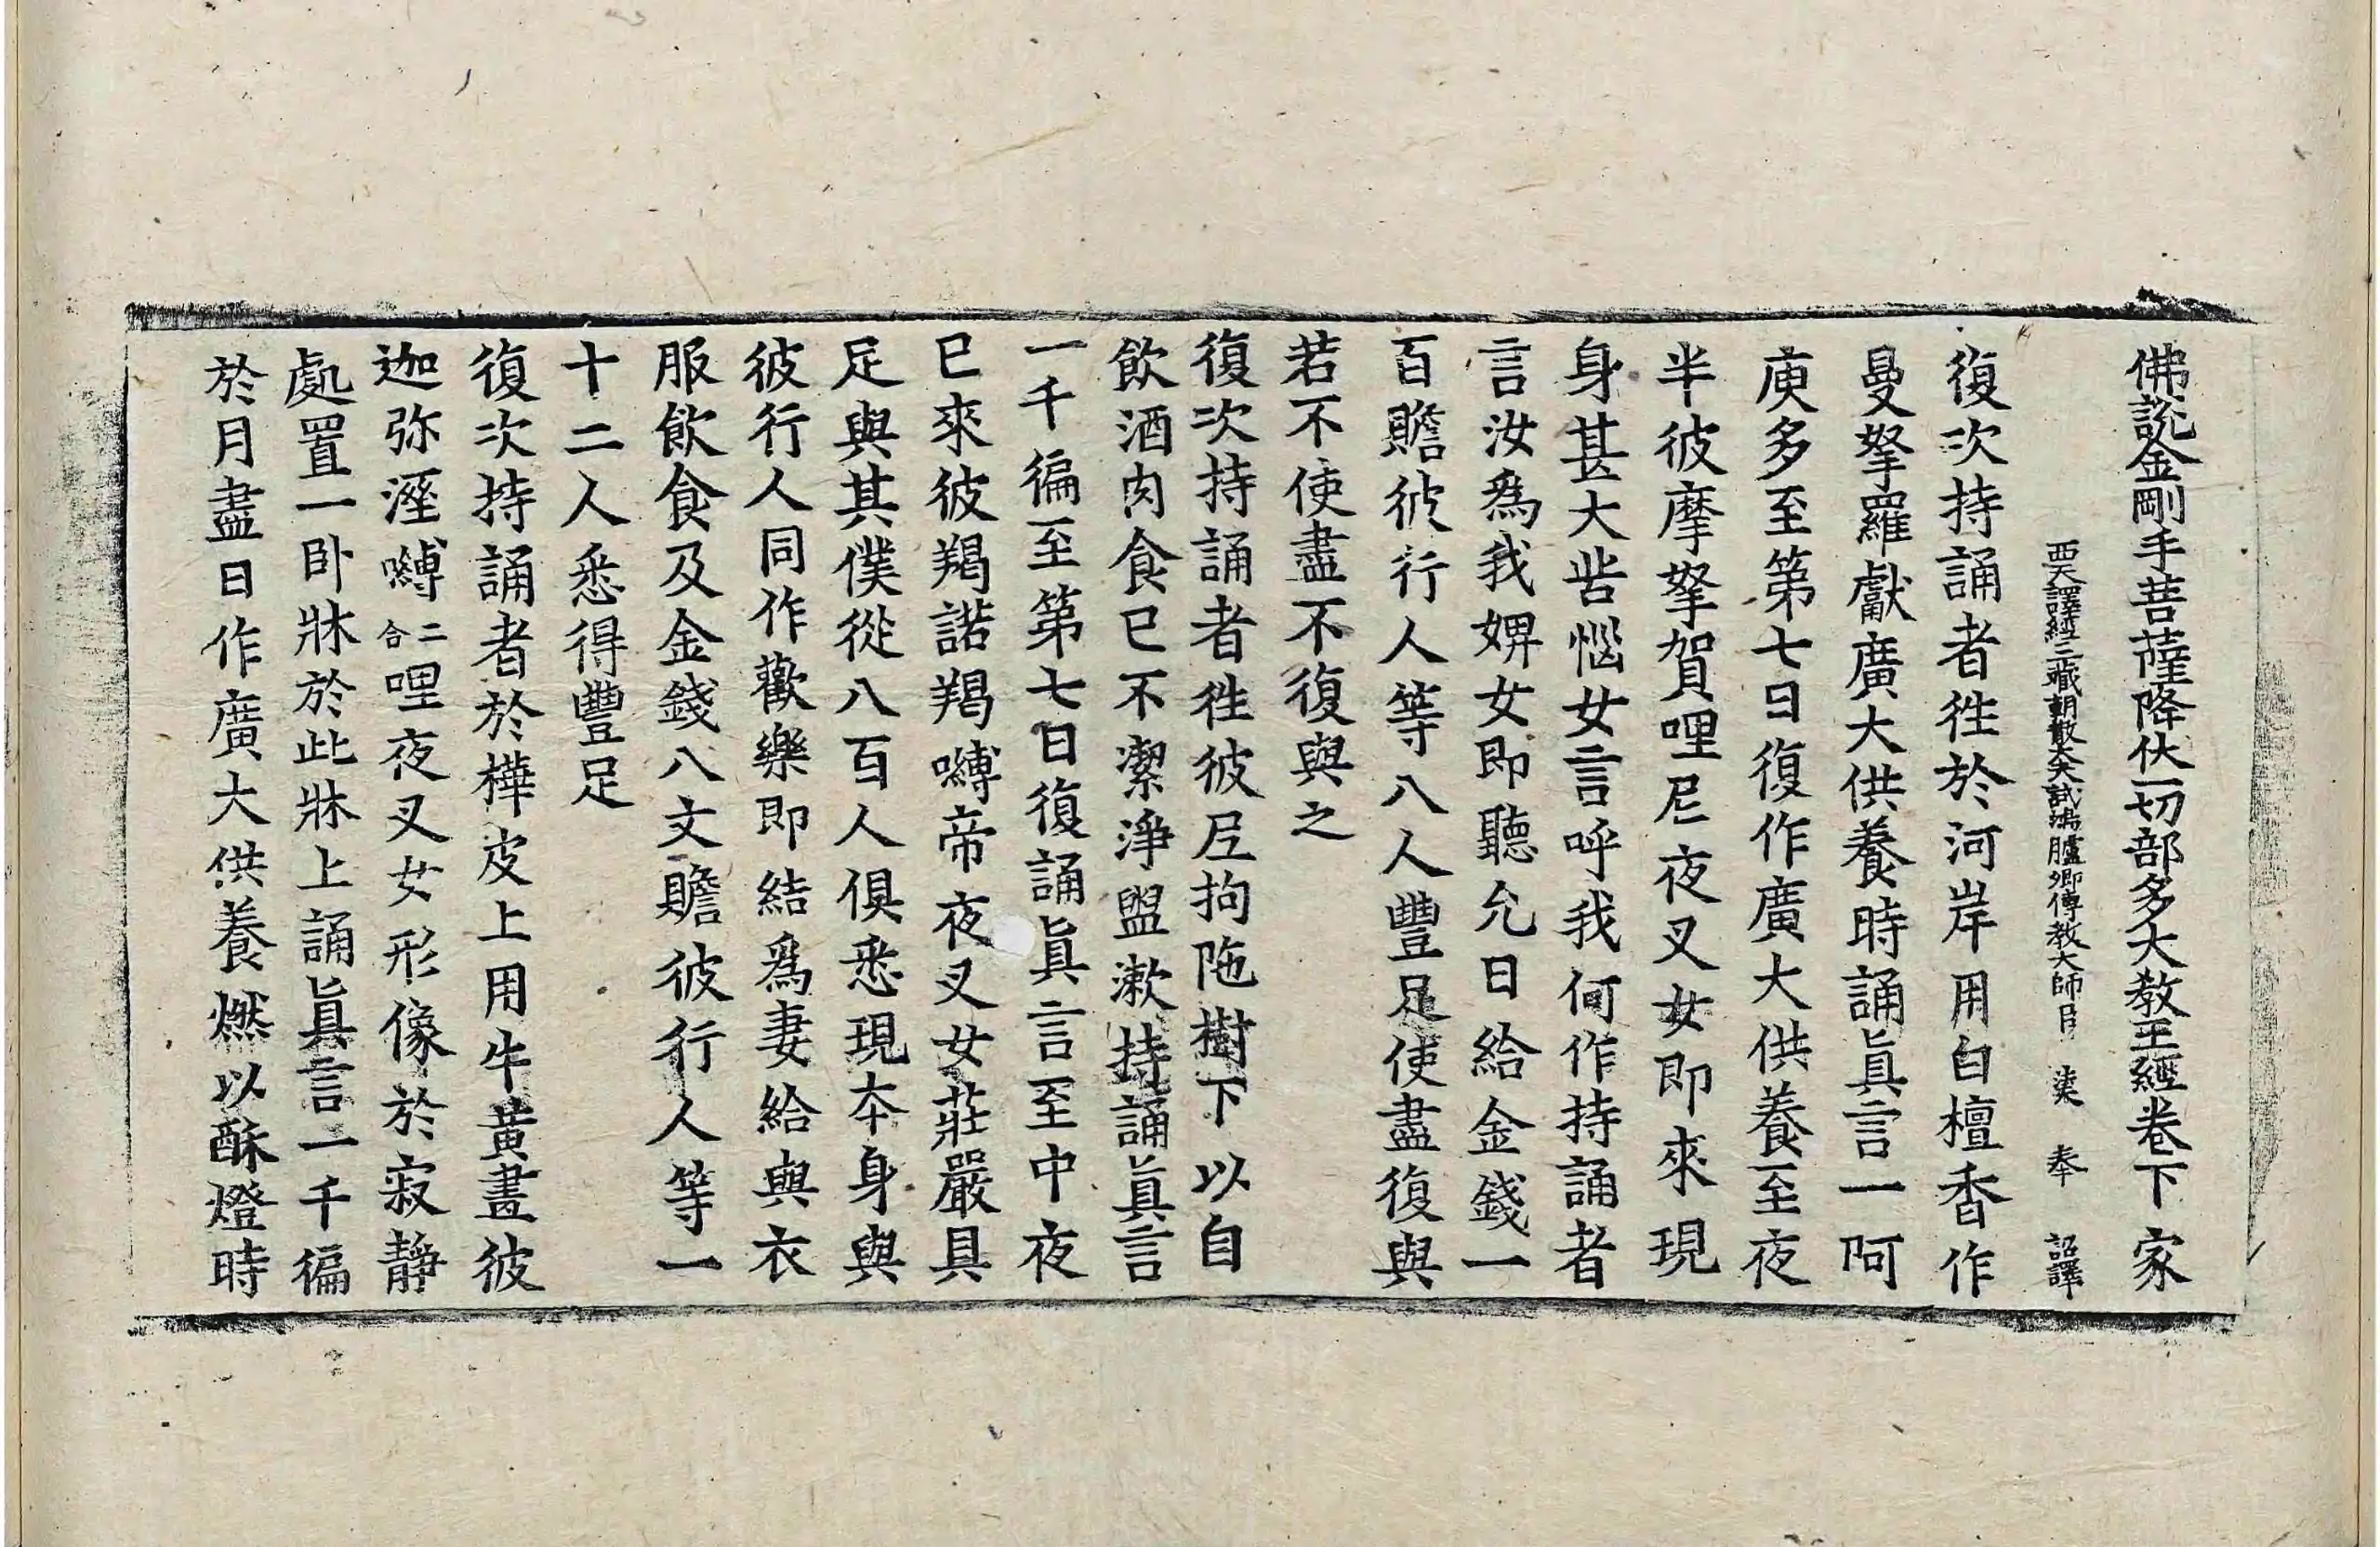 佛說金剛手菩薩降伏一切部多大教王經卷下 家
西天譯經三藏朝散大夫試鴻臚卿傳教大師臣 法天 奉 詔譯
復次持誦者徃於河岸用白檀香作
曼拏羅獻廣大供養時誦眞言一阿
庾多至第七日復作廣大供養至夜
半彼摩拏賀哩尼夜叉女即來現
身甚大苦惱女言呼我何作持誦者
言汝爲我婢女即聽允日給金錢一
百贍彼行人等八人豐足使盡復與
若不使盡不復與之
復次持誦者徃彼尼拘陁樹下以自
飲酒肉食已不潔淨盥漱持誦眞言
一千徧至第七日復誦眞言至中夜
已來彼羯諾羯嚩帝夜叉女莊嚴具
足與其僕從八百人俱悉現夲身與
彼行人同作歡樂即結爲妻給與衣
服飲食及金錢八文贍彼行人等一
十二人悉得豐足
復次持誦者於樺皮上用牛黃畫彼
迦弥濕嚩二合哩夜叉女形像於寂靜
處置一卧牀於此牀上誦眞言一千徧
於月盡日作廣大供養燃以酥燈時